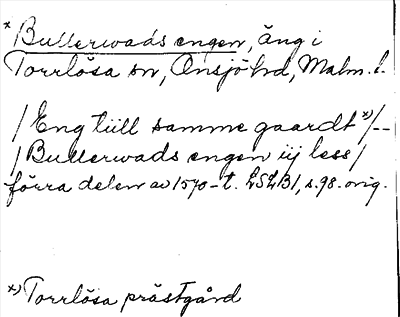 * Bullerwads engen, äng i
Torrlösa sn, Onsjö hd, Malm. l.
/Eng tiill samme gaardt *)/--
/Bullerwads engen iij less/
förra delen av 1570-t. LSLB1, s. 98. orig.
*) Torrlösa prästgård